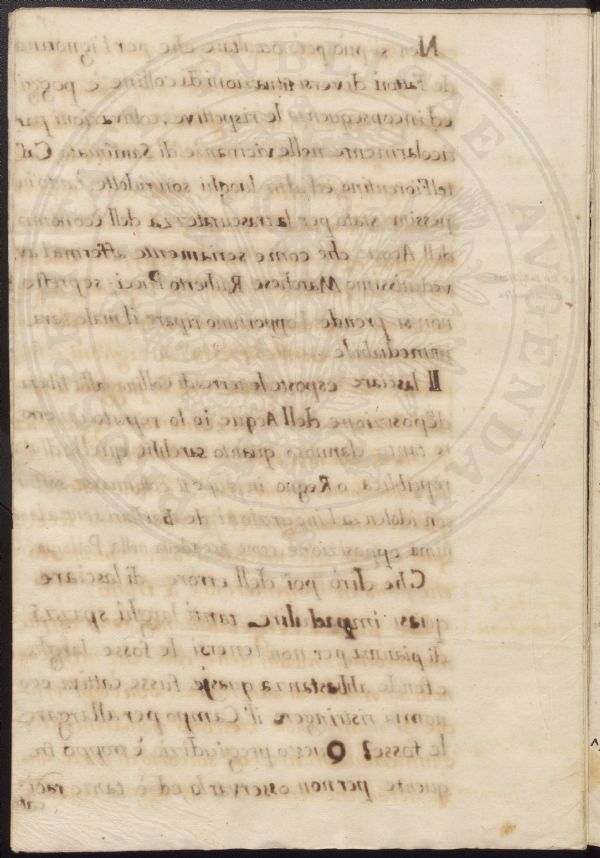 PROSPERITATI PVBLICAE AVGENDAE
Non si può però occultare che per l'ignoran
de Fattori diversi situazioni di colline e poggi
ed in conseguenza le rispettive coltivazioni par
ticolarmente nelle vicinanze di Cas
tel Fiorentino ed altri luoghi son ridotte
pessimo stato per la trascuratezza dell'economia
dell'Acque che come seriamente
vedutissimo Marchese Ruberto Pucci, se presto
non si prende l'opportuno riparo il male sarà
irremediabile
Il lasciare esposte le terre di Collina alla libera
disposizione dell'Acque io lo reputo
te tanto dannoso quanto sarebbe quello di
repubblica o Regno in
con idolenza l'incursioni de Barbari senza
cuna opposizione come accadde nella
Che dirò poi dell'errore di lasciare
quasi impadulire tanti larghi spazzi
di pianura per non tenersi le fosse larghe
e fonde abbastanza quasi fusse cattiva eco
nomia ristringere il Campo per allargare
le fosse? Questo pregiudizio è troppo fre
quente per non osservarlo ed è tanto radi
cat